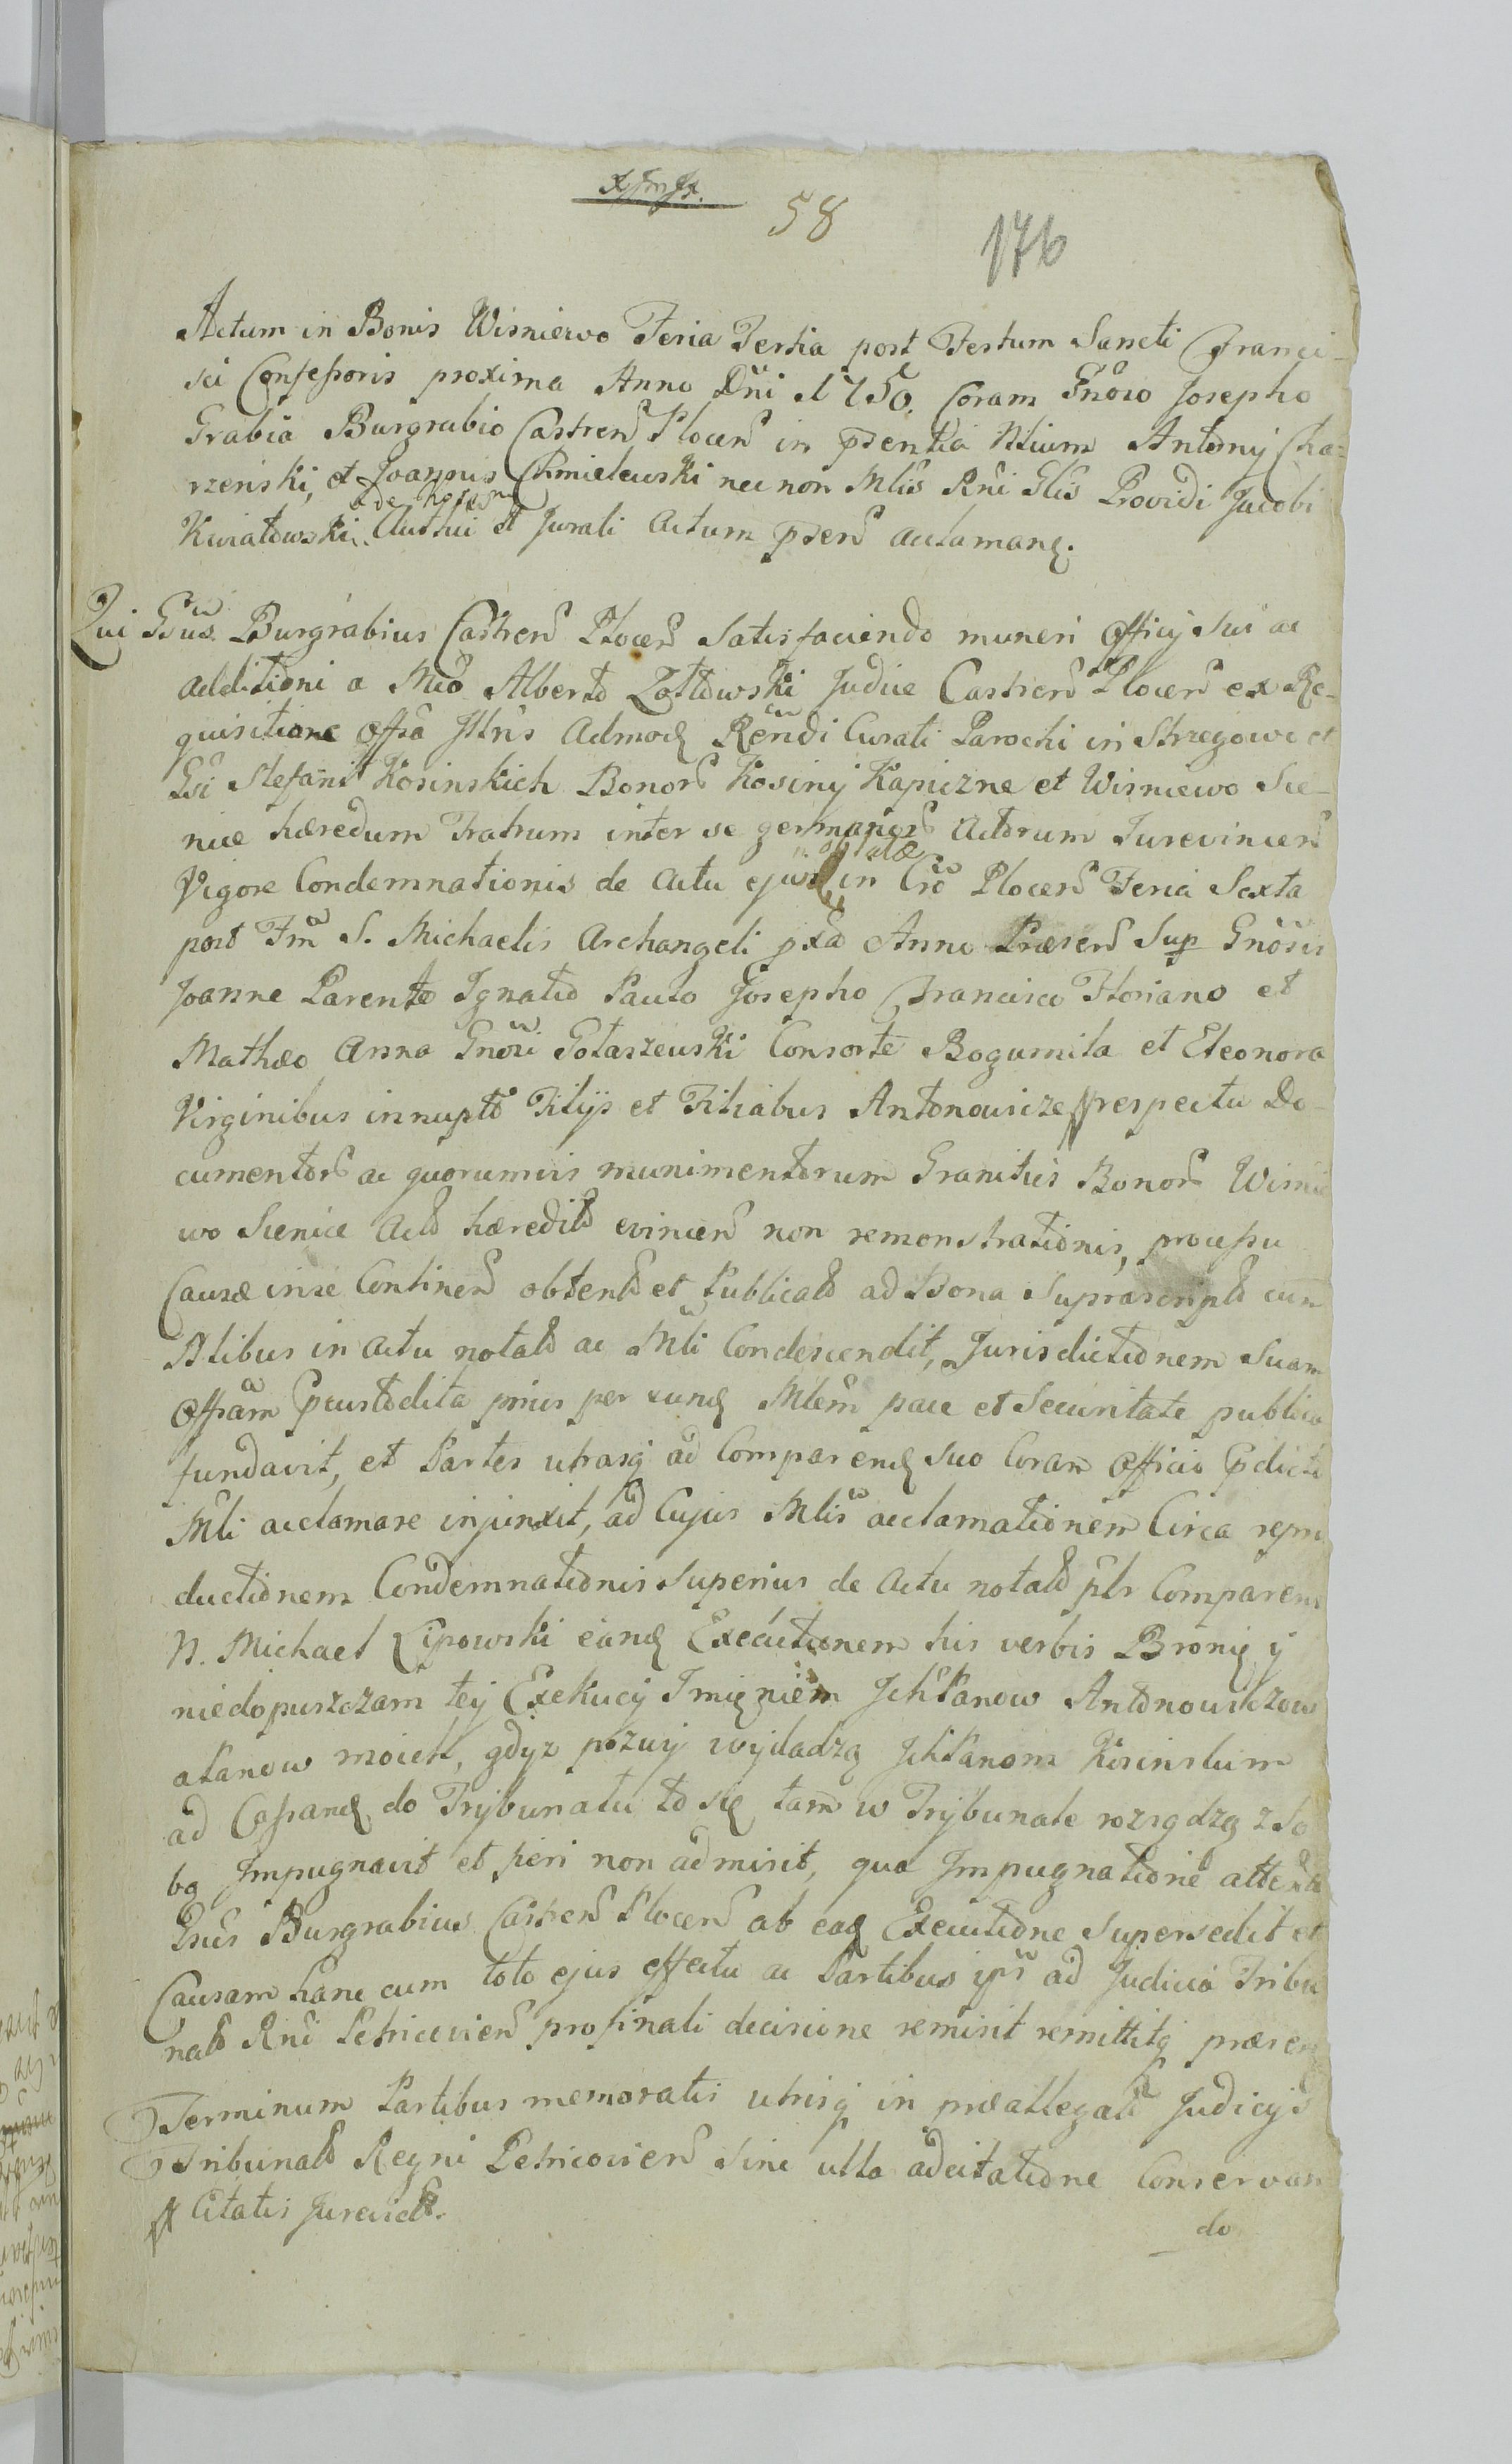 58
176
Actum in Bonis Wisniewo Feria Tertia post Festum Sancti Franci-
sci Confessoris proxima Anno Dni 1750. Coram Gnoso Josepho
Grabia Burgrabio Castren Plocen in psentia Nlium Antonij Cha-
rzenski, et Joannis Chmielewski nec non Mlis Rni Glis Providi Jacobi
Kwiatowski Authci et Jurati Actum psens acclamans.
Qui Gsus Burgrabius Castren Plocen Satisfaciendo muneri Officij Sui ac
additioni a Mco Alberto Zołtowski Judice Castren Plocen ex Re-
quisitione Offsa Jllris Admod Rendi Curati Parochi in Strzegowo et
Gsi Stefani Kosinskich Bonor Kosiny Kapiczne et Wisniewo Sce-
nice hæredum Fratrum inter se germanor Actorum Jurevincen
Vigore Condemnationis de Actu ejusd in Cro Plocen Feria Sexta
post Fm S. Michaelis Archangeli pxa Anno Præsen Sup Gnosis
Joanne Parente Ignatio Paulo Josepho Francisco Floriano et
Mathæo Anna Gnosi Gołaszewski Consorte Bogumila et Eleonora
Virginibus innuptis Filijs et Filiabus Antonowicze respectu Do-
cumentor ac quorumvis munimentorum Granities Bonor Wisnie
wo Scenice Act hæredit evincen non remonstrationis, processu
Causæ in se Continen obtent et Publicat ad Bona Suprascript cum
Nlibus in actu notat ac Mli Condescendit, Jurisdictionem Suam
Offsam pcustodita prius per eund Mlem pace et Securitate publica
fundavit, et Partes utrasq ad Comparend Suo Coram Officio pdicto
Mli acclamare injunxit, ad Cujus Mlis acclamationem Circa repro
ductionem Condemnationis superius de Actu notat plr Comparens
N. Michael Lipowski eand Executionem his verbis Bronię y
niedopuszczam tey Exekucij Imięniem JchPanow Antonowiczow
aPanow moich, gdyz pozwy wydadzą JchPanom Kosinskim
ad Cassand do Trybunatu to się tam w Trybunale rozsądzą z So
bą Impugnavit et fieri non admisit, qua Impugnatione attenta
Gsus Burgrabius Castren Plocen ab ead Executione Supersedit et
Causam hanc cum toto ejus effectu ac Partibus ipsis ad Judicia Tribu
nal Rni Petricovien pro finali decisione remisit remittitq præsen
Terminum Partibus memoratis utrisq in præallegatis Judicijs
Tribunal Regni Petricovien Sine ulla adcitatione Conservan
Citatis Jurevict.
do